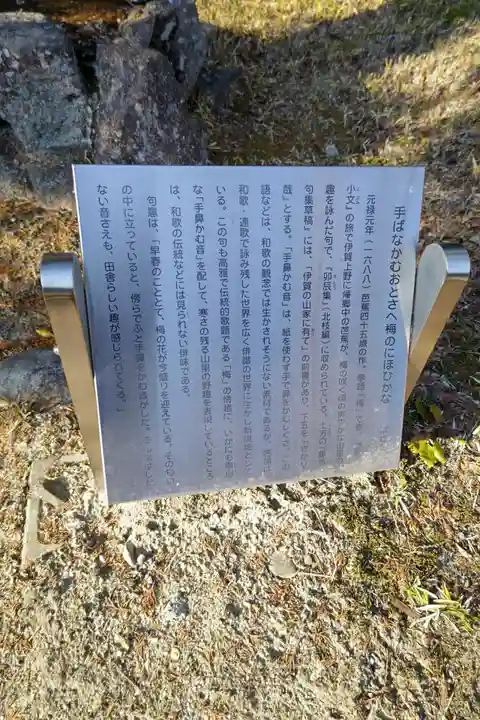 手ばなかむおとさへ梅のにほひかな
元禄元年（一六八八）芭蕉四十五歳の作。季語「梅」で春。
小文』の旅で伊賀上野に帰郷中の芭蕉が、梅の咲く頃の
趣を詠んだ句で、『卯辰集』（北枝編）に収められている。
句集草稿』には、「伊賀の山家に有て」の前書があり、下五を
哉」とする。「手鼻かむ音」は、紙を使わず手で鼻をかむしぐさ
語などは、和歌の観念では生かされそうにない素材であるが、
和歌・連歌で詠み残した世界を広く俳諧の世界に生かし
いる。この句も高雅で伝統的歌題である「梅」の情趣に、いかにも
な「手鼻かむ音」を配して、寒さの残る山里の野趣を表現しているところ
は、和歌の伝統などには見られない俳味である。
句意は、「早春のこととて、梅の花が今盛りを迎えている。その匂い
の中に立っていると、傍らでふと手鼻をかむ音がした。
ない音さえも、田舎らしい趣が感じられてくる。」